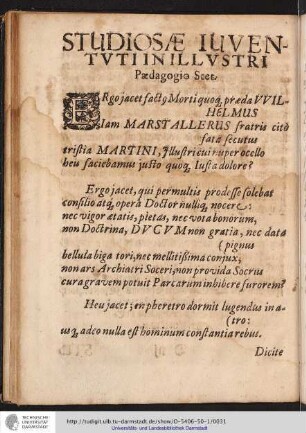 STUDIOSÆ IUVEN-
TUTI IN ILLVSTRI
Pædagogio Scet.
ERgo jacet factꝰ Morti quoq́, præda VVIL-
HELMUS
Iam MARSTALLERUS fratris citò
fata secutus
tristia MARTINI, Illustrè cui nuper ocello
heu faciebamus justo quoq́, Iusta dolore?
Ergo jacet, qui permultis prodesse solebat
consilio atq́, operâ Doctor nulliq́, nocere:
nec vigor ætatis, pietas, nec vota bonorum,
non Doctrina, DVCVM non gratia, nec data
(pignus
bellula biga tori, nec mellitissima conjux,
non ars Archiatri Soceri, non provida Socrus
cura gravem potuit Parcarum inhibere furorem?
Heu jacet; in pheretro dormit lugendus in a-
(tro:
usq́, adeo nulla est hominum constantia rebus.
Dicite
TECHNISCHE
UNIVERSITÄT
DARMSTADT
http://tudigit.ulb.tu-darmstadt.de/show/O-5406-50-1/0031
Universitäts- und Landesbibliothek Darmstadt